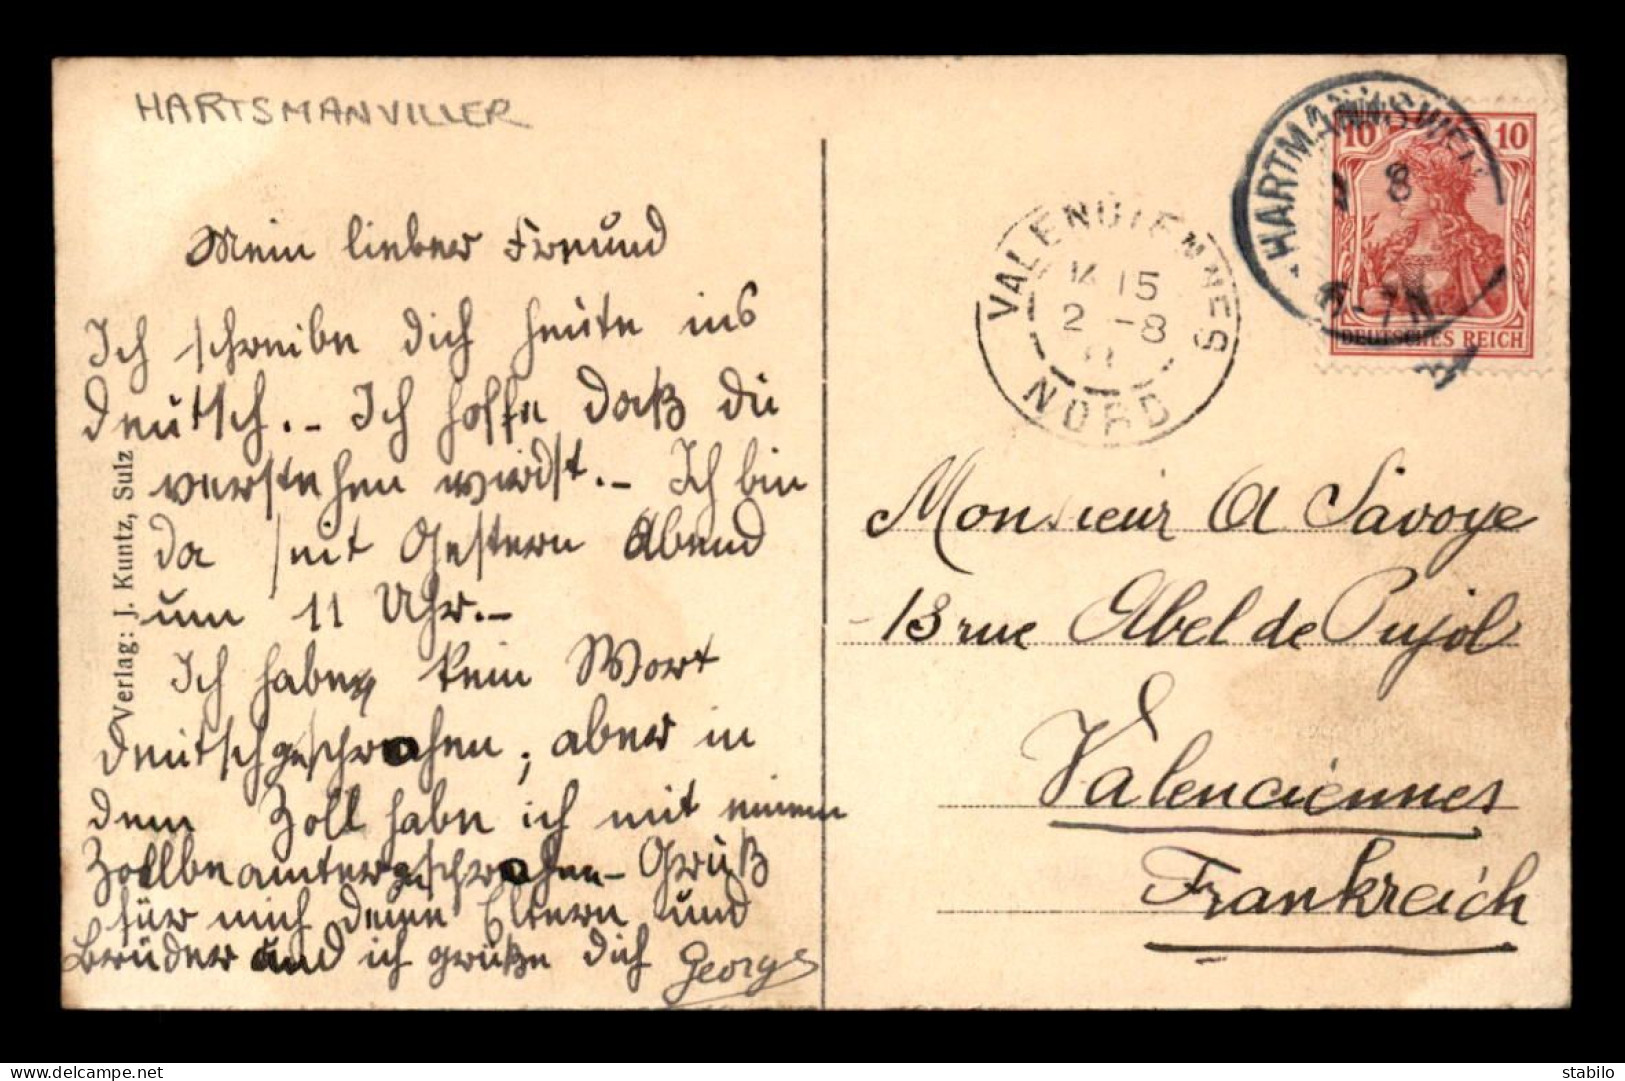 HARTSMANVILLER
Mein lieber Freund
Ich schreibe dich heute ins
deutsch. - Ich hoffe daß du
verstehen wirdst. - Ich bin
da seit Gestern Abend
um 11 Uhr. -
Ich habe kein Wort
deutsch gesprochen, aber in
dem Zoll habe ich mit einem
Zollbeamter gesprochen - Gruß
für mich deine Eltern und
Brüder und ich grüße dich Georges
Verlag: J. Kuntz, Sulz
VALENCIENNES
14 15
2 -8
11
NORD
HARTMANNSWEI
1 8
6-7N
10 10
DEUTSCHES REICH
Monsieur A Savoye
13 rue Abel de Pujol
Valenciennes
Frankreich
delcampe.net
stabilo